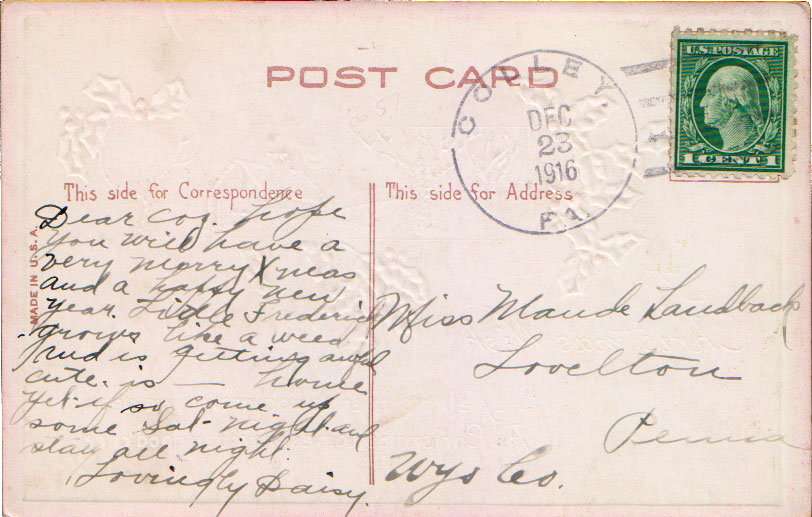 POST CARD
COLLEY.
DEC
23
1916
P.A.
U.S. POSTAGE
1 CENT 1
This side for Correspondence
This side for Address
MADE IN U.S.A.
Dear coz. hope
you will have a
very merry Xmas
and a happy new
year. Little Frederick
grows like a weed
and is getting awful
cute. is — home
yet. if so come up
some Sat. night and
stay all night.
Lovingly Daisy.
Miss Maude Landback
Lovelton
Penna
Wyo Co.